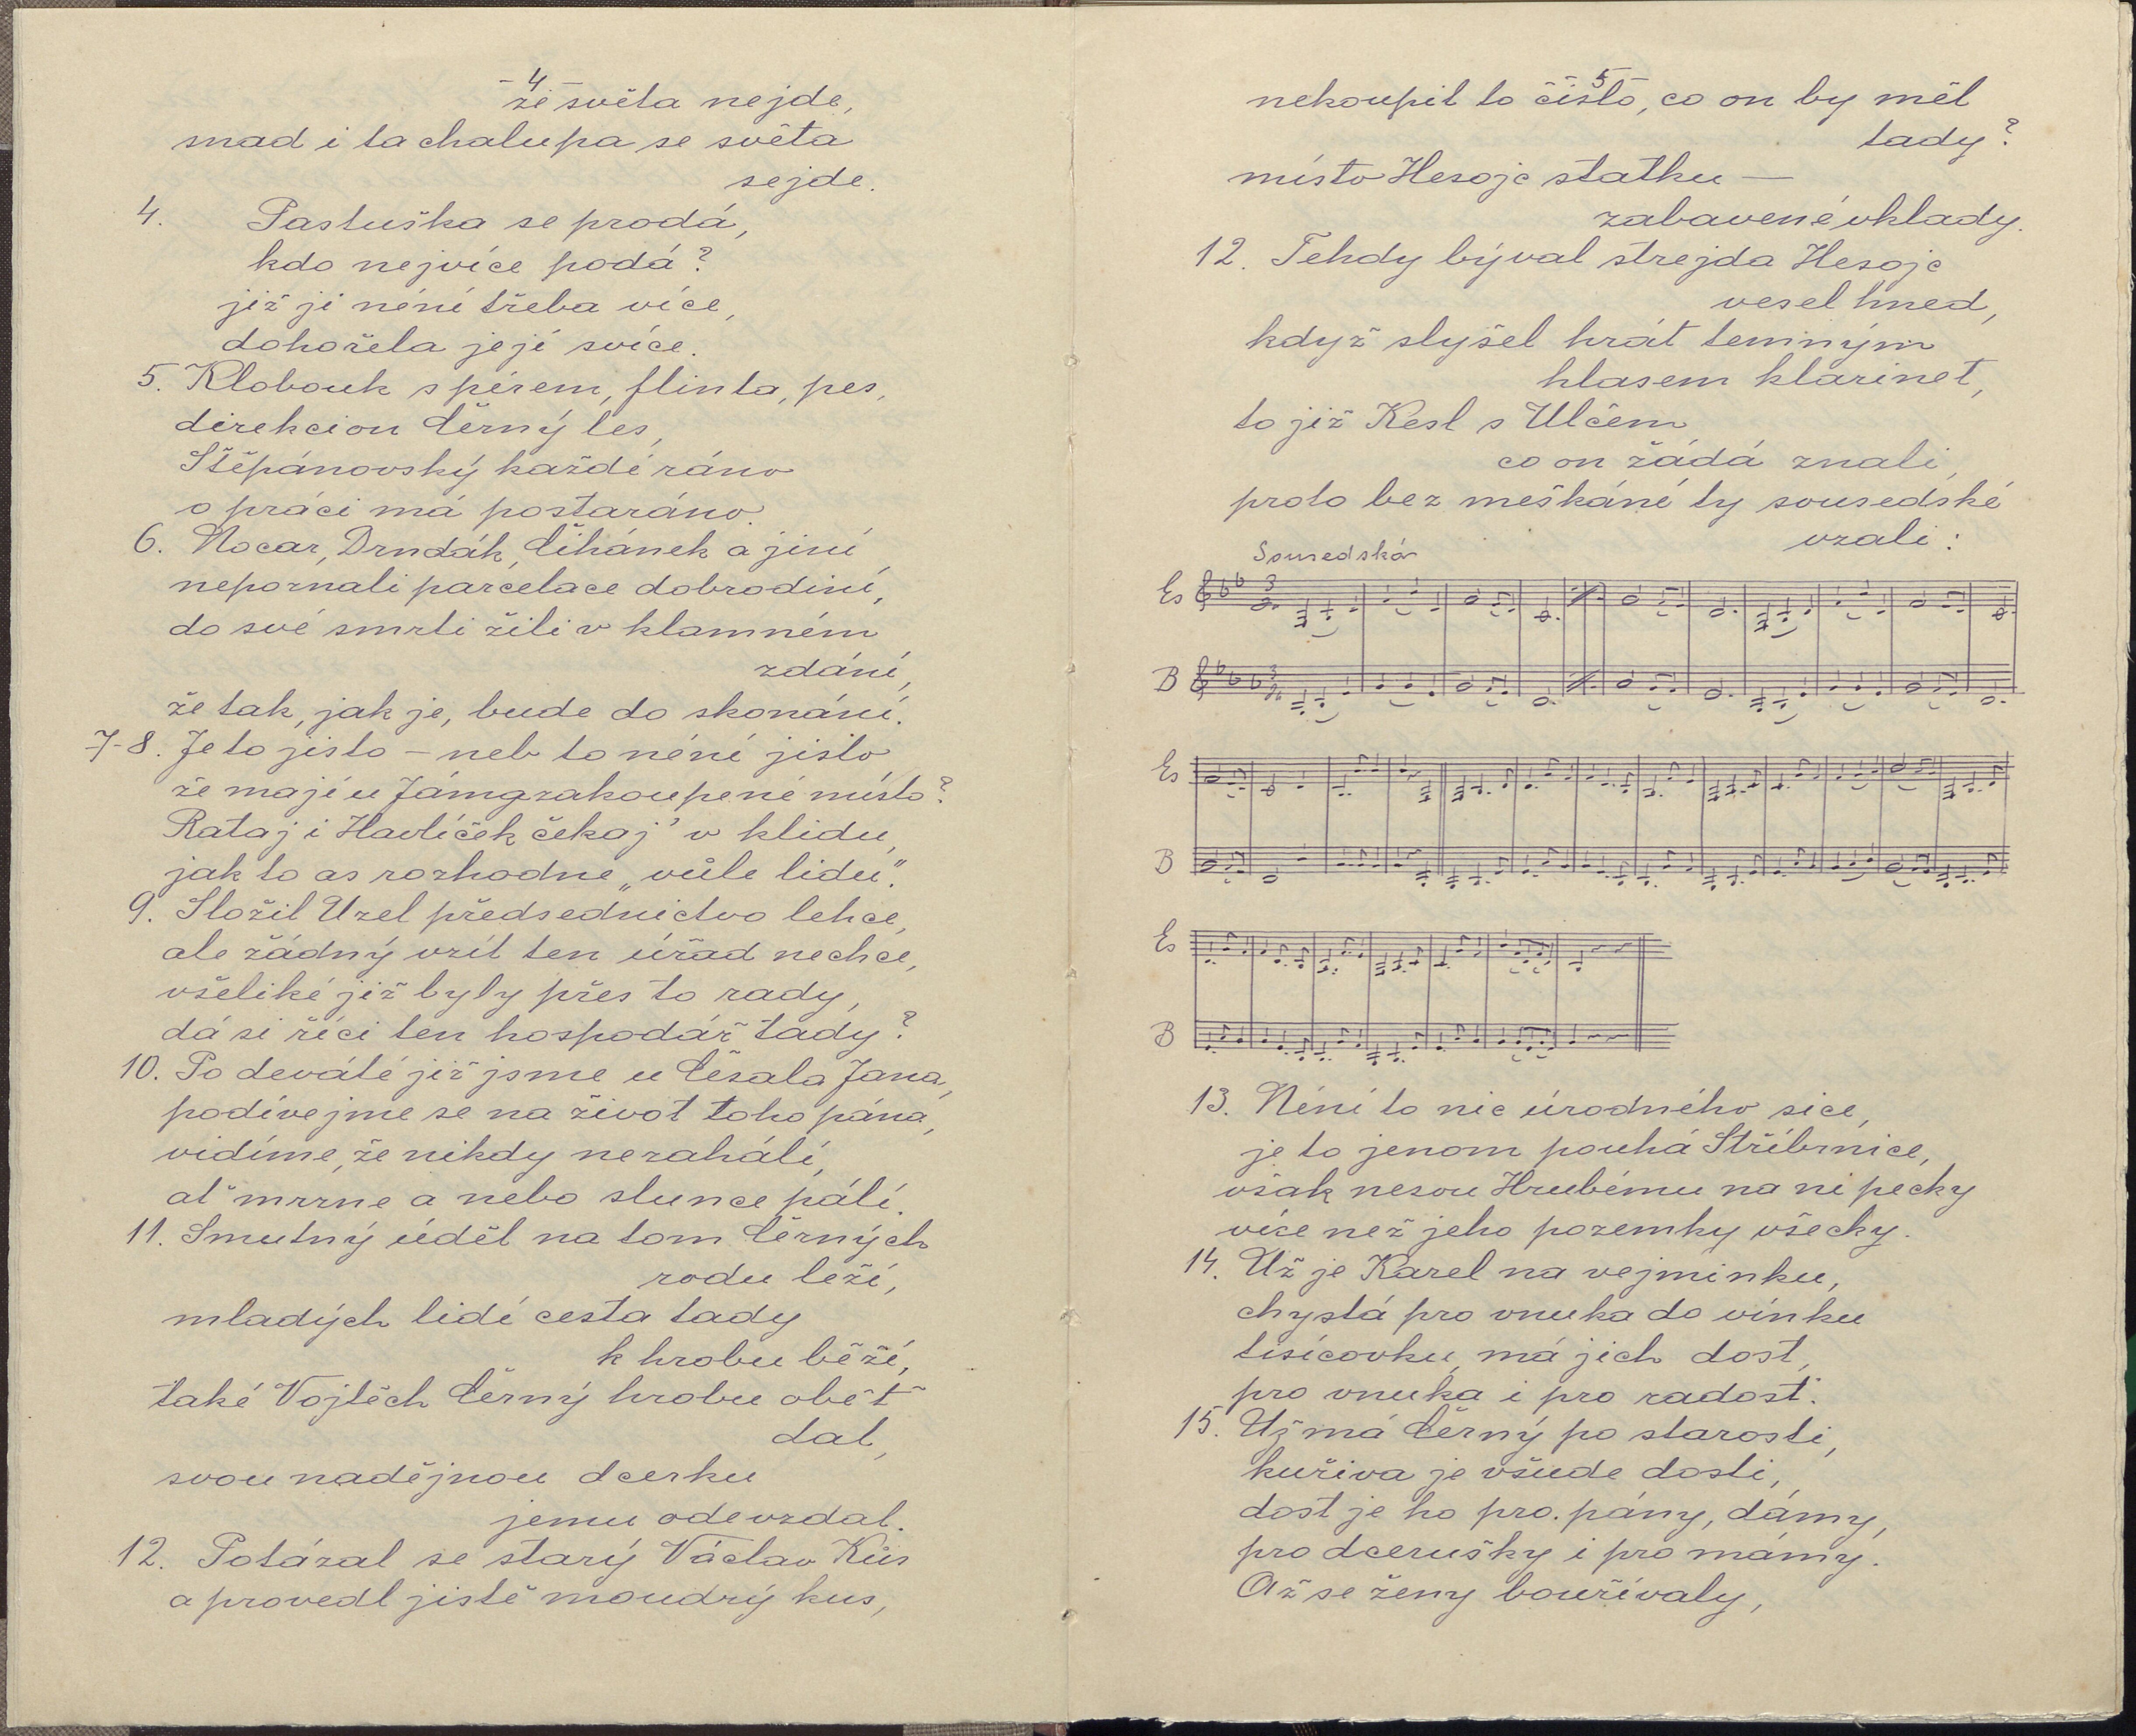 - 4 -
že světa nejde,
snad i ta chalupa se světa
sejde.
4. Pastuška se prodá,
kdo nejvíce podá?
již jí néní třeba více,
dohořela její svíce.
5. Klobouk s pérem, flinta, pes,
direkcion Černý les,
Štěpánovský každé ráno
o práci má postaráno.
6. Nocar, Drndák, Čihánek a jiní
nepoznali parcelace dobrodiní,
do své smrti žili v klamném
zdání,
že tak, jak je, bude do skonání.
7-8. Je to jisto – neb to néní jisto
že mají u Jámy zakoupené místo?
Rataj i Havlíček čekaj' v klidu,
jak to as rozhodne „vůle lidu".
9. Složil Uzel předsednictvo lehce,
ale žádný vzít ten úřad nechce,
všeliké již byly přes to rady,
dá si říci ten hospodář tady?
10. Po deváté již jsme u Česala Jana,
podívejme se na život toho pána,
vidíme, že nikdy nezahálí,
ať mrzne a nebo slunce pálí.
11. Smutný úděl na tom Černých
rodu leží,
mladých lidí cesta tady
k hrobu běží,
také Vojtěch Černý hrobu oběť
dal,
svou nadějnou dcerku
jemu odevzdal.
12. Potázal se starý Václav Kůs
a provedl jistě moudrý kus,
- 5 -
nekoupil to číslo, co on by měl
tady?
místo Hesoje statku —
zabavené vklady.
12. Tehdy býval strejda Hesoje
vesel hned,
když slyšel hrát temným
hlasem klarinet,
to již Kesl s Ulčem
co on žádá znali,
proto bez meškání ty sousedské
vzali:
Sousedská
Es
3
B
3
Es
B
Es
B
13. Néní to nic úrodného sice,
je to jenom pouhá Stříbrnice,
však nesou Hrubému na ni pecky
více než jeho pozemky všecky.
14. Už je Karel na vejminku,
chystá pro vnuka do vínku
tisícovku, má jich dost,
pro vnuka i pro radost.
15. Už má Černý po starosti,
kuřiva je všude dosti,
dost je ho pro pány, dámy,
pro dcerušky i pro mámy.
Až se ženy bouřívaly,